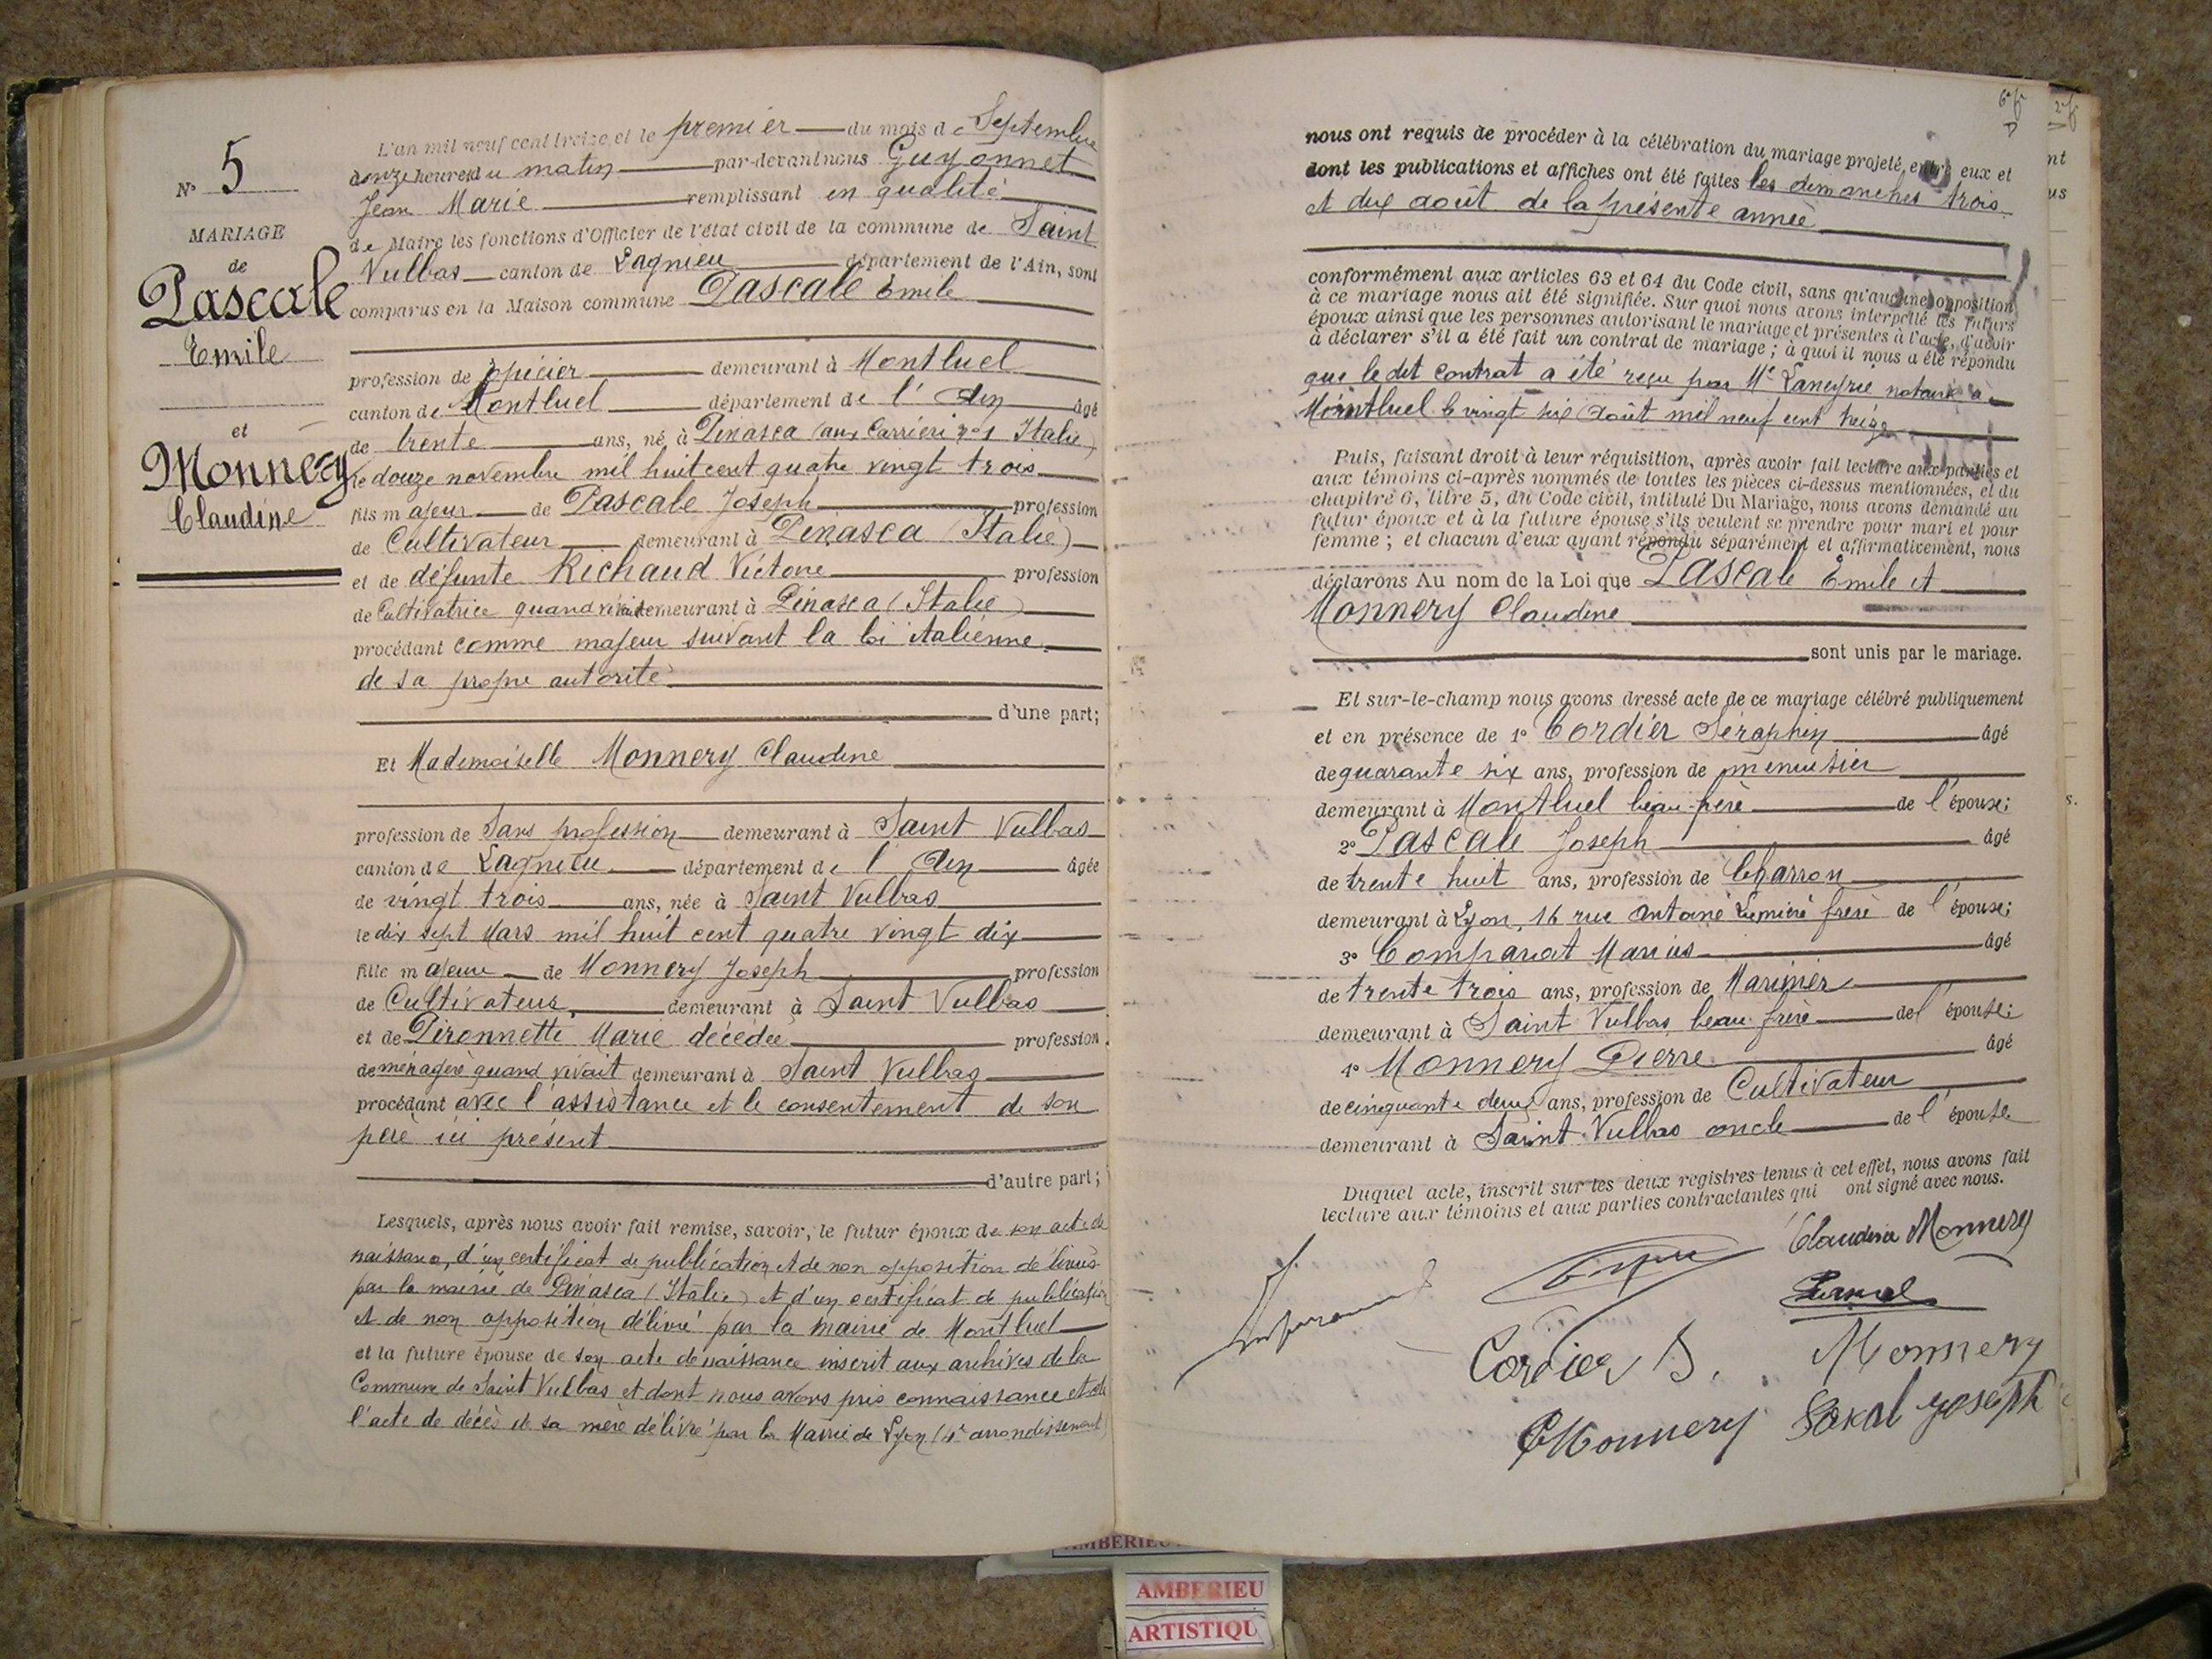 N° 5
MARIAGE
de
Pascale
Emile
et
Monnery
Claudine
L'an mil neuf cent treize, et le premier du mois de Septembre
heures du matin par-devant nous Guyonnet
Jean Marie remplissant en qualité
de Maire les fonctions d'Officier de l'état civil de la commune de Saint
Vulbas canton de Lagnieu département de l'Ain, sont
comparus en la Maison commune Pascale Emile
profession de épicier demeurant à Montluel
canton de Montluel département de l'Ain âgé
de trente ans, né à Pinasca (aux Carrieri n° 1 Italie)
le douze novembre mil huit cent quatre vingt trois
fils majeur de Pascale Joseph profession
de Cultivateur demeurant à Pinasca (Italie)
et de défunte Richaud Victorie profession
de Cultivatrice quand vivait demeurant à Pinasca (Italie)
procédant comme majeur suivant la loi italienne
de sa propre autorité
d'une part;
Et Mademoiselle Monnery Claudine
profession de Sans profession demeurant à Saint Vulbas
canton de Lagnieu département de l'Ain âgée
de vingt trois ans, née à Saint Vulbas
le dix sept Mars mil huit cent quatre vingt dix
fille majeure de Monnery Joseph profession
de Cultivateur demeurant à Saint Vulbas
et de Pironnette Marie décédée profession
de ménagère quand vivait demeurant à Saint Vulbas
procédant avec l'assistance et le consentement de son
père ici présent
d'autre part;
Lesquels, après nous avoir fait remise, savoir, le futur époux de son acte de
naissance, d'un certificat de publication et de non opposition délivrés
par la mairie de Pinasca (Italie) et d'un certificat de publication
et de non opposition délivré par la mairie de Montluel
et la future épouse de son acte de naissance inscrit aux archives de la
Commune de Saint Vulbas et dont nous avons pris connaissance et de
l'acte de décès de sa mère délivré par la Mairie de Lyon (4e arrondissement)
nous ont requis de procéder à la célébration du mariage projeté entre eux et
dont les publications et affiches ont été faites les dimanches trois
et dix août de la présente année
conformément aux articles 63 et 64 du Code civil, sans qu'aucune opposition
à ce mariage nous ait été signifiée. Sur quoi nous avons interpellé les futurs
époux ainsi que les personnes autorisant le mariage et présentes à l'acte, d'avoir
à déclarer s'il a été fait un contrat de mariage; à quoi il nous a été répondu
que le dit contrat a été reçu par Me Laneyrie notaire à
Montluel le vingt six août mil neuf cent treize
Puis, faisant droit à leur réquisition, après avoir fait lecture aux parties et
aux témoins ci-après nommés de toutes les pièces ci-dessus mentionnées, et du
chapitre 6, titre 5, du Code civil, intitulé Du Mariage, nous avons demandé au
futur époux et à la future épouse s'ils veulent se prendre pour mari et pour
femme; et chacun d'eux ayant répondu séparément et affirmativement, nous
déclarons Au nom de la Loi que Pascale Emile et
Monnery Claudine
sont unis par le mariage.
Et sur-le-champ nous avons dressé acte de ce mariage célébré publiquement
et en présence de 1° Cordier Séraphin âgé
de quarante six ans, profession de menuisier
demeurant à Montluel beau-frère de l'épouse;
2° Pascale Joseph âgé
de trente huit ans, profession de Charron
demeurant à Lyon, 16 rue Antoine Lumière frère de l'épouse;
3° Comparat Marius âgé
de trente trois ans, profession de Marinier
demeurant à Saint Vulbas beau frère de l'épouse;
4° Monnery Pierre âgé
de cinquante deux ans, profession de Cultivateur
demeurant à Saint Vulbas oncle de l'épouse
Duquel acte, inscrit sur les deux registres tenus à cet effet, nous avons fait
lecture aux témoins et aux parties contractantes qui ont signé avec nous.
Claudine Monnery
Cordier S.
Monnery
Monnery
Joseph
AMBERIEU
ARTISTIQU